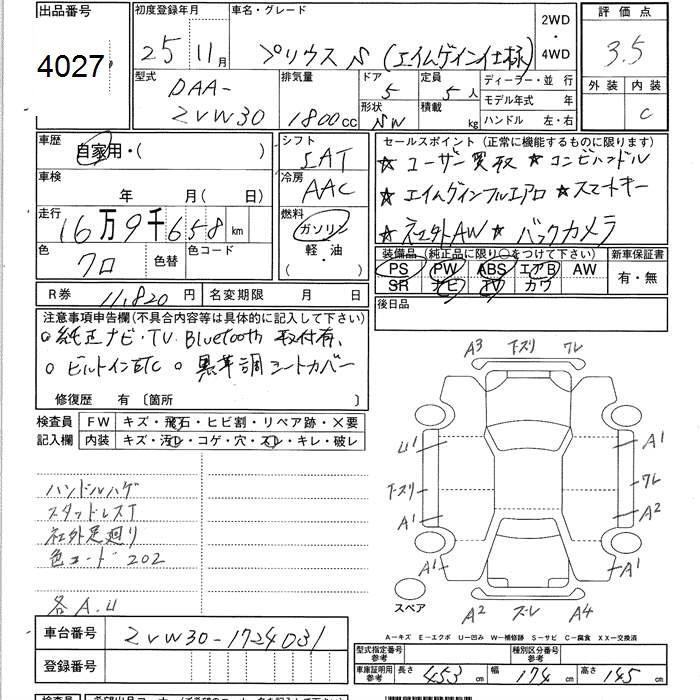 出品番号 初度登録年月 車名・グレード 2WD・4WD 評価点
4027 25年 11月 プリウス S (エイムゲイン仕様) 3.5
型式 排気量 ドア 定員 ディーラー・並行 外装 内装
DAA-ZVW30 1800cc 5 5人 モデル年式 年 C
形状 積載 kg ハンドル 左・右
車歴 シフト セールスポイント(正常に機能するものに限ります)
自家用・( ) ☆ユーザー買取 ☆コンビハンドル
車検 年 月( 日) 冷房 AAC ☆エイムゲインフルエアロ ☆スマートキー
走行 16万9千658km 燃料 ガソリン ☆社外AW ☆バックカメラ
色 クロ 色替 色コード 軽・油 ( )
装備品(純正品に限り○をつけて下さい) 新車保証書
PS PW ABS エアB AW 有・無
SR ナビ TV カワ
R券 11,820円 名変期限 月 日 後日品
注意事項申告欄(不具合内容等は具体的に記入して下さい)
○純正ナビ・TV Bluetooth 取付有、
○ビルトインETC ○黒革調シートカバー
修復歴 有 〔箇所 〕
検査員 FW キズ・飛石・ヒビ割・リペア跡・×要
記入欄 内装 キズ・汚レ・コゲ・穴・スレ・キレ・破レ
ハンドルハゲ
スタッドレスT
社外足廻り
色コード 202
各A.U
A3 下スリ ワレ
U1 A1
下スリ ワレ
A1 A2
A1 A1
スペア A2 ズレ A4
A−キズ E−エクボ U−凹み W−補修跡 S−サビ C−腐食 XX−交換済
車台番号 ZVW30-1724031
登録番号
型式指定番号 参考 種別区分番号 参考
車庫証明用 参考 長さ 453cm 幅 174cm 高さ 145cm